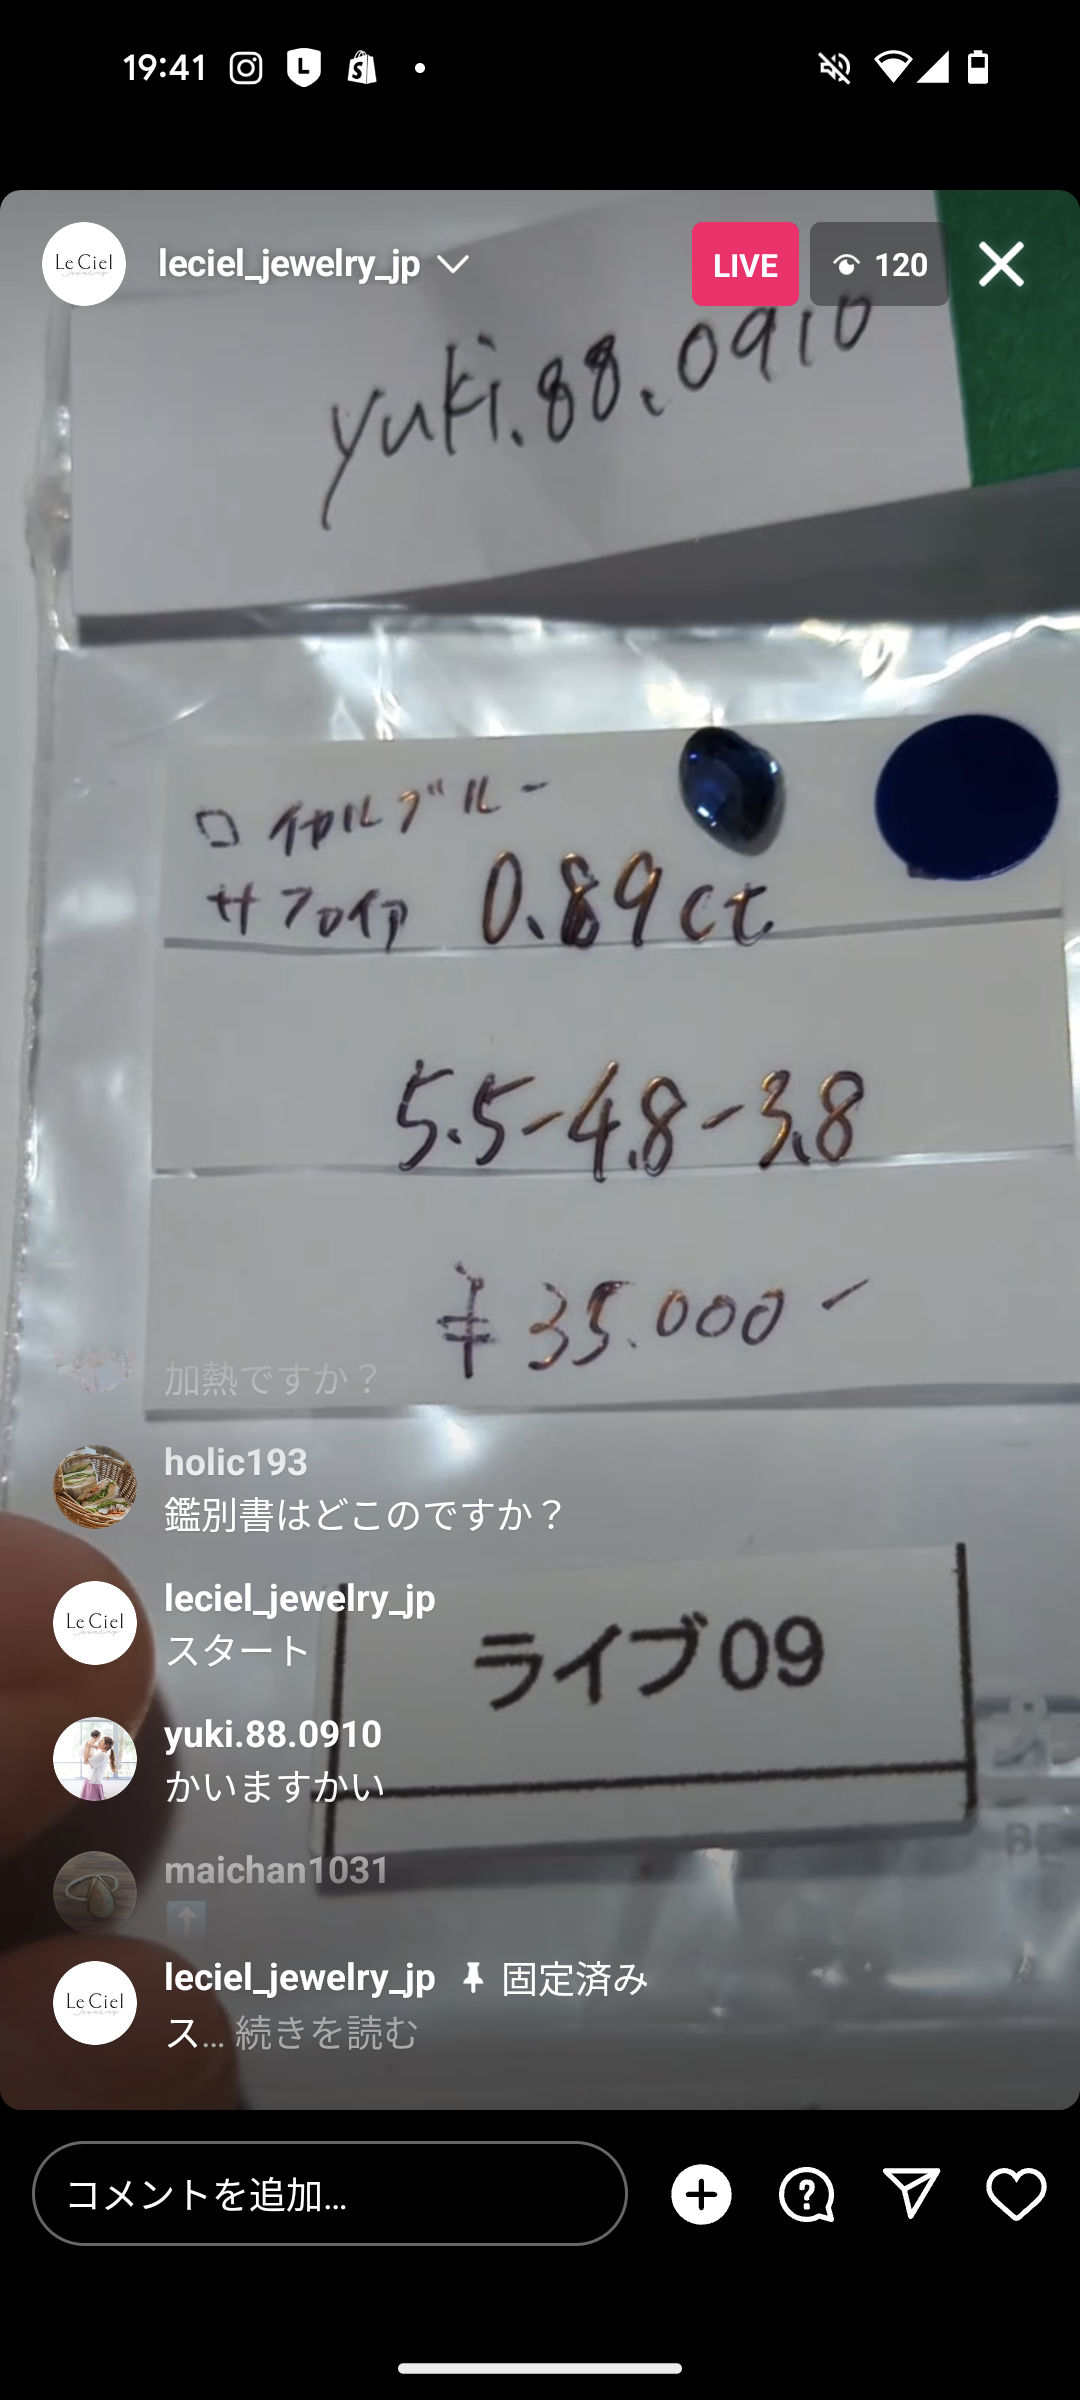 19:41
Le Ciel
leciel_jewelry_jp
LIVE
120
yuki.88.0910
ロイヤルブルー
サファイア 0.89ct
5.5-4.8-3.8
¥35.000-
加熱ですか？
holic193
鑑別書はどこのですか？
Le Ciel
leciel_jewelry_jp
スタート
ライブ09
yuki.88.0910
かいますかい
maichan1031
Le Ciel
leciel_jewelry_jp 固定済み
ス... 続きを読む
コメントを追加...